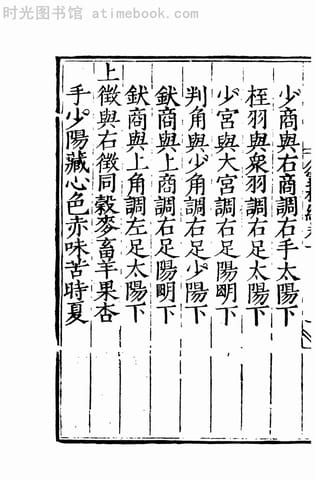 时光图书馆 - atimebook.com
少商與右商調右手太陽下
桎羽與衆羽調右足太陽下
少宮與大宮調右足陽明下
判角與少角調右足少陽下
釱商與上商調右足陽明下
釱商與上角調左足太陽下
上徵與右徵同穀麥畜羊果杏
手少陽藏心色赤味苦時夏